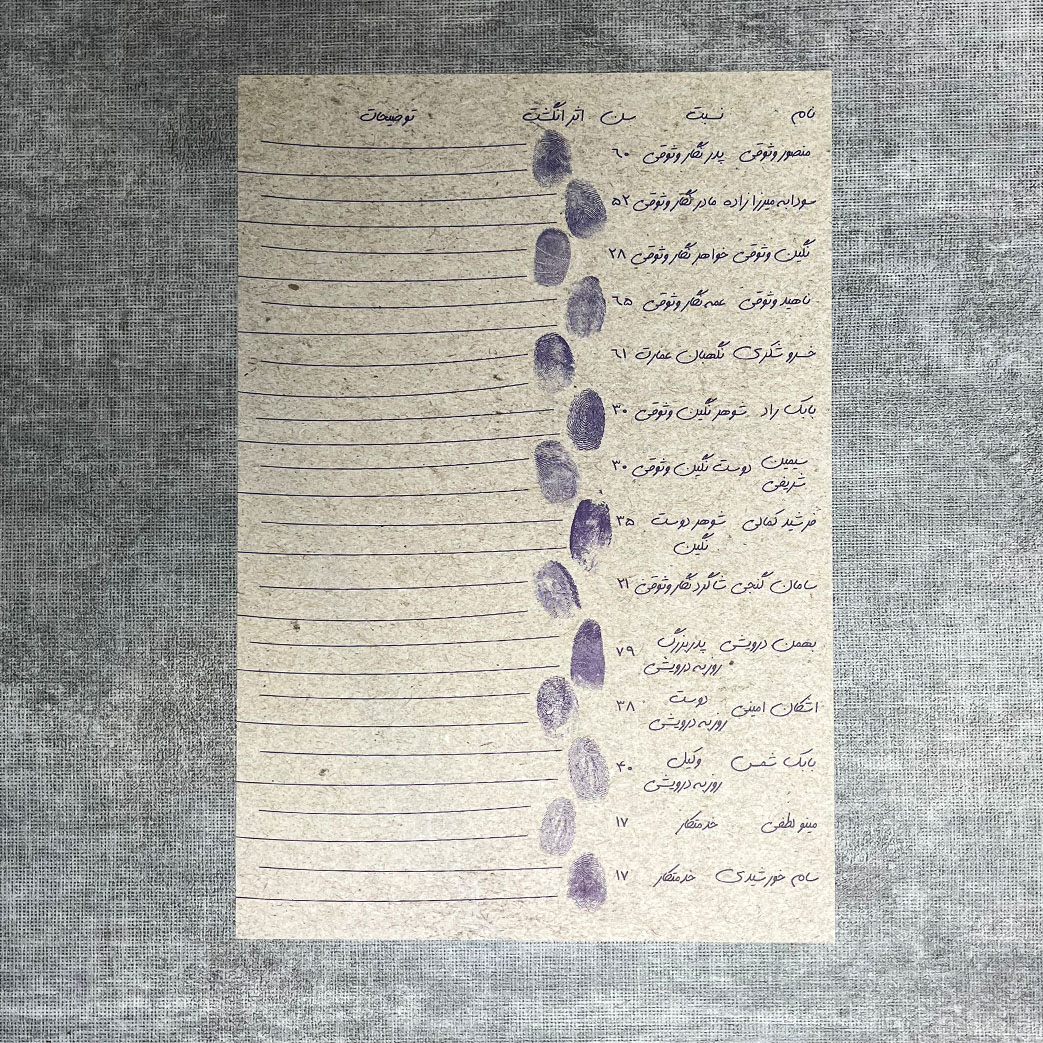 نام نسبت سن اثر انگشت توضیحات
منصور وثوقی پدر نگار وثوقی ٦٠
سودابه میرزازاده مادر نگار وثوقی ۵۲
نگین وثوقی خواهر نگار وثوقی ۲۸
ناهید وثوقی عمه نگار وثوقی ٦۵
خسرو شکری نگهبان عمارت ٦١
بابک راد شوهر نگین وثوقی ۳۰
سیمین دوست نگین وثوقی ۳۰
شریفی
فرشید کمالی شوهر دوست ۳۵
نگین
سامان گنجی شاگرد نگار وثوقی ۲۱
بهمن درویش پدربزرگ ۷۹
روزبه درویش
اشکان امینی دوست ۳۸
روزبه درویش
بابک شمس وکیل ۴۰
روزبه درویش
مینو لطفی خدمتکار ۱۷
سام خورشیدی خدمتکار ۱۷